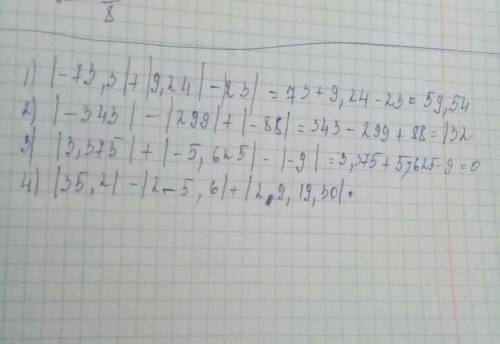 8
1) |-73,3|+|9,24|-|23| = 73+9,24-23=59,54
2) |-343|-|299|+|-88|=343-299+88=132
3) |3,375|+|-5,625|-|-9|=3,375+5,625-9=0
4) |35,2|-|2-5,6|+|2,9,19,30|.